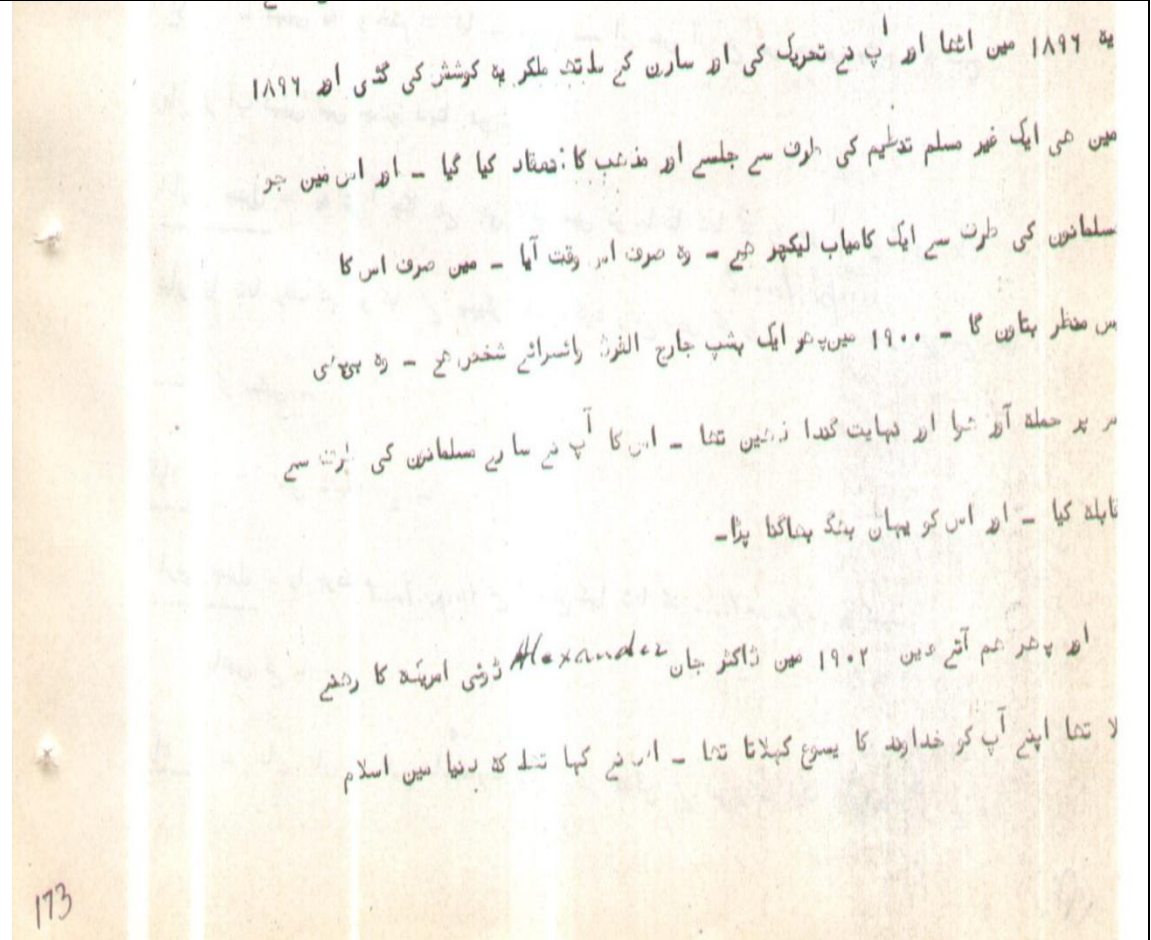 یہ ۱۸۹۶ مین اٹھا اور آپ نے تحریک کی اور سارن کے ساتھ ملکر یہ کوشش کی گئی اور ۱۸۹۶
مین ھی ایک غیر مسلم تنظیم کی طرف سے جلسے اور مذھب کا انعقاد کیا گیا ۔ اور اس مین جو
مسلمانون کی طرف سے ایک کامیاب لیکچر ھے ۔ وہ صرف اس وقت آیا ۔ مین صرف اس کا
پس منظر بتاون گا ۔ ۱۹۰۰ مین پھر ایک بشپ جارج الفرڈ شخص ھے ۔ وہ
پر حملہ آور ھوا اور نہایت گندا ذھین تھا ۔ اس کا آپ نے سارے مسلمانون کی طرف سے
مقابلہ کیا ۔ اور اس کو یہان بھاگنا پڑا۔
اور پھر ھم آتے ھین ۱۹۰۲ مین ڈاکٹر جان Alexander ڈوئی امریکہ کا رھنے
لا تھا اپنے آپ کو خداوند کا یسوع کہلاتا تھا ۔ اس نے کہا تھا کہ دنیا مین اسلام
173